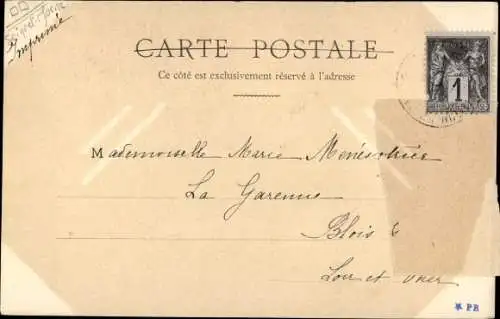 Imprimée
CARTE POSTALE
Ce côté est exclusivement réservé à l'adresse
1
Mademoiselle Marie
La Garenne
Blois
Loir et Cher
* PB